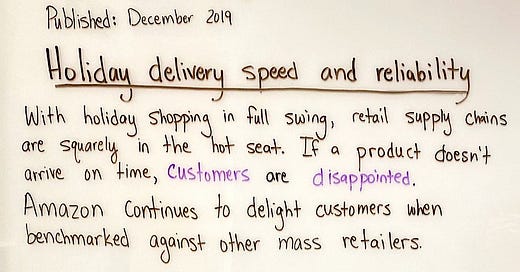 Published: December 2019
Holiday delivery speed and reliability
With holiday shopping in full swing, retail supply chains
are squarely in the hot seat. If a product doesn't
arrive on time, customers are disappointed.
Amazon continues to delight customers when
benchmarked against other mass retailers.